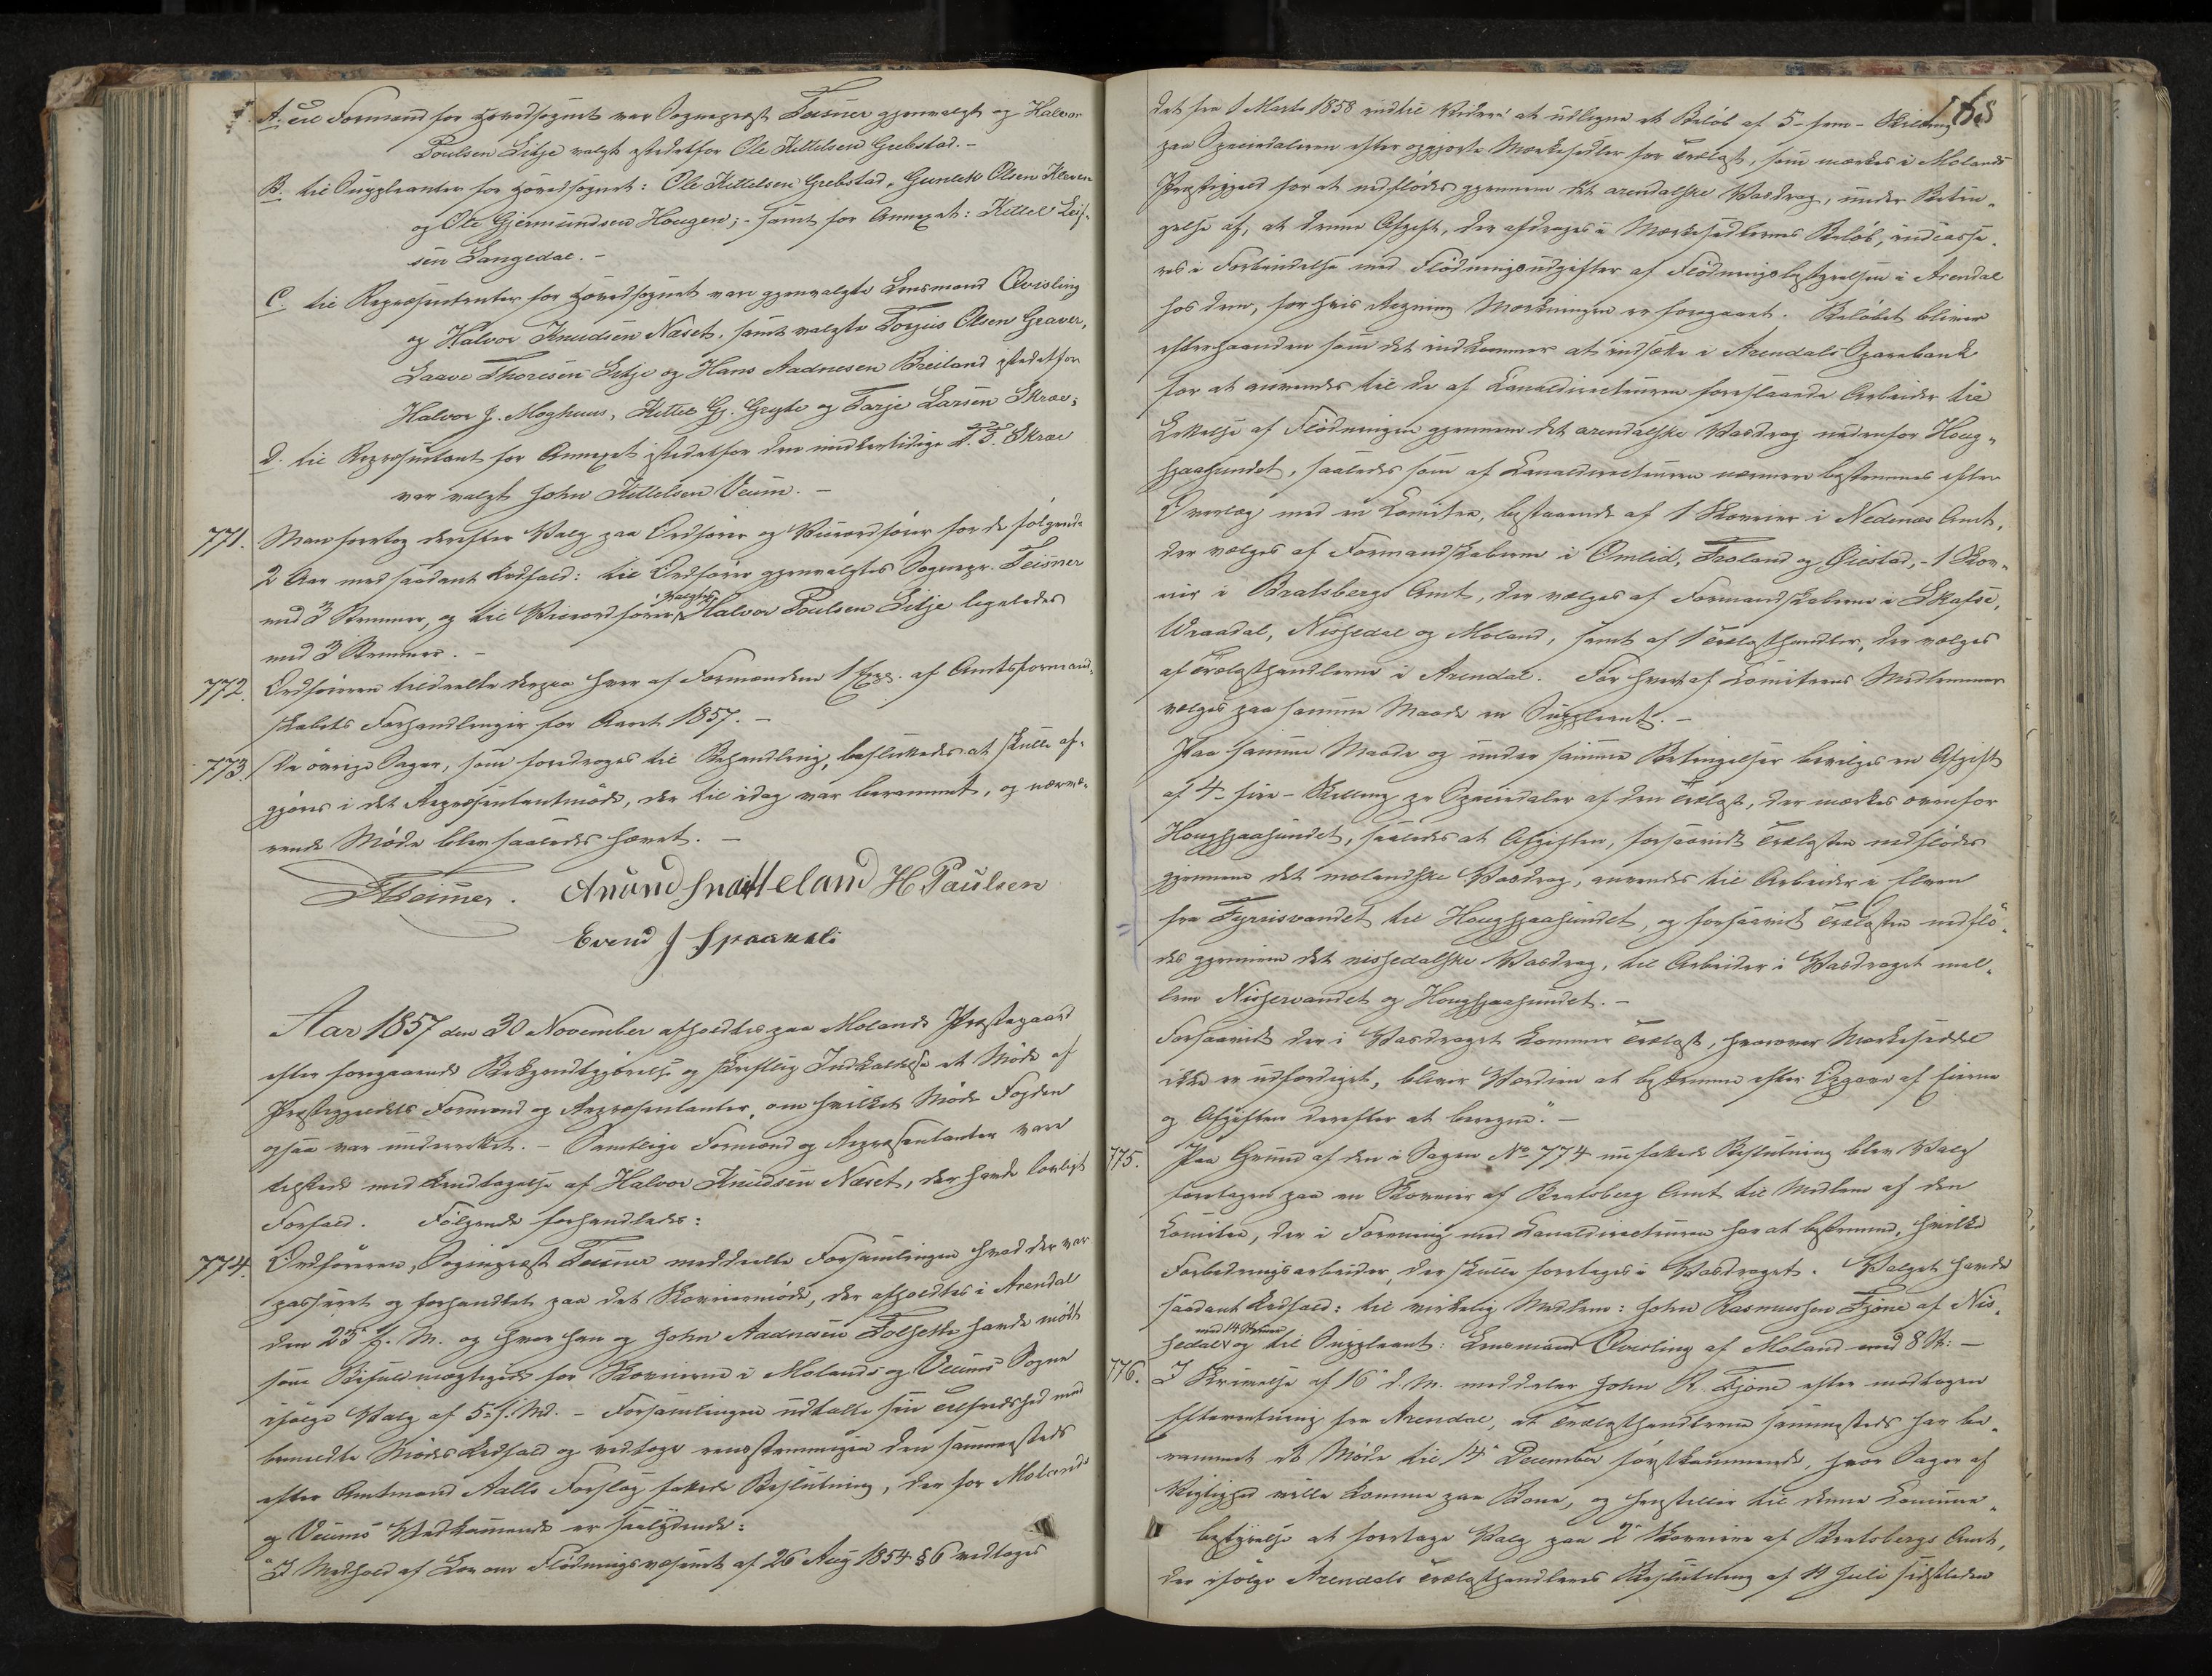 A. til Formænd for Hovedsognet var Sognepræst Teisner gjenvalgt og Halvor
Poulsen Litje valgt istedetfor Ole Kittelsen Grebstad. –
B. til Suppleanter for Hovedsognet: Ole Kittelsen Grebstad, Gunlek Olsen Kleven
og Ole Gjermundsen Hougen; - samt for Annexet: Kittel Leif-
sen Langedal. –
C. til Repræsentanter for Hovedsognet vare gjenvalgte Lensmand Qvisling
og Halvor Knudsen Næset, samt valgte Torjus Olsen Graver,
Laave Thoresen Litje og Hans Aadnesen Breiland istedetfor
Halvor J. Moghuus, Kittel Gj. Gryte og Tarje Larsen Skrae;
D. til Repræsentant for Annexet istedetfor den midlertidige T. T. Skrae
var valgt John Kittelsen Veum. –
771. Man foretog derefter Valg paa Ordfører og Viceordfører for de følgende
2 Aar med saadant Udfald: til Ordfører gjenvalgtes Sognepr. Teisner
med 3 Stemmer, og til Viceordfører valgtes Halvor Poulsen Litje ligeledes
med 3 Stemmer. –
772. Ordføreren tildeelte derpaa hver af Formændene 1 Expl. af Amtsformand-
skabets Forhandlinger for Aaret 1857. –
773. De øvrige Sager, som foredroges til Behandling, besluttedes at skulle af-
gjøres i det Repræsentantmøde, der til idag var berammet, og nærvæ-
rende Møde blev saaledes hævet. –
FTeisner. Anund Snatteland H Paulsen
Evend J Spaakeli
Aar 1857 den 30 November afholdtes paa Molands Præstegaard
efter foregaaende Bekjendtgjørelse og skriftlig Indkaldelse et Møde af
Præstegjeldets Formænd og Repræsentanter, om hvilket Møde Fogden
ogsaa var underrettet. – Samtlige Formænd og Repræsentanter vare
tilstede med Undtagelse af Halvor Knudsen Næset, der havde lovligt
Forfald. Følgende forhandledes:
774. Ordføreren, Sognepræst Teisner meddeelte Forsamlingen hvad der var
passeret og forhandlet paa det Skoveiermøde, der afholdtes i Arendal
den 25 f. M. og hvor han og John Aadnesen Tolsette havde mødt
som Befuldmægtigede for Skoveierne i Molands og Veums Sogne
ifølge Valg af 5. f. Md. – Forsamlingen udtalte sin Tilfredshed med
bemeldte Mødes Udfald og vedtoge eenstemmigen den sammesteds
efter Amtmand Aalls Forslag fattede Beslutning, der for Molands
og Veums Vedkommende er saalydende:
"I Medhold af Lov om Flødningsvæsenet af 26 Aug 1854 § 6 vedtages
168
det fra 1 Marts 1858 indtil Videre at udligne et Beløb af 5 – fem – Skilling
paa Speciedaleren efter opgjorte Mærkesedler for Trælast, som mærkes i Molands
Præstegjeld for at nedflødes gjennem det arendalske Vasdrag, under Betin-
gelse af, at denne Afgift, der afdrages i Mærkesedlernes Beløb, indcasse-
res i Forbindelse med Flødningsudgifter af Flødningsbestyrelsen i Arendal
hos dem, for hvis Regning Mærkningen er foregaaet. Beløbet bliver
efterhaanden som det indkommer at indsætte i Arendals Sparebank
for at anvendes til de af Canaldirecteuren foreslaaede Arbeider til
Lettelse af Flødningen gjennem det arendalske Vasdrag nedenfor Houg-
sjaasundet, saaledes som af Canaldirecteuren nærmere bestemmes efter
Overlæg med en Comitee, bestaaende af 1 Skoveier i Nedenæs Amt,
der vælges af Formandskaberne i Omlid, Froland og Øiestad, – 1 Skov-
eier i Bratsbergs Amt, der vælges af Formandskaberne i Skafse,
Wraadal, Nissedal og Moland, samt af 1 Trælasthandler, der vælges
af Trælasthandlerne i Arendal. For hvert af Comiteens Medlemmer
vælges paa samme Maade en Suppleant. –
Paa samme Maade og under samme Betingelser bevilges en Afgift
af 4 – fire – Skilling pr Speciedaler af den Trælast, der mærkes ovenfor
Hougsjaasundet, saaledes at Afgiften, forsaavidt Trælasten nedflødes
gjennem det molandske Vasdrag, anvendes til Arbeider i Elven
fra Fyrrisvandet til Hougsjaasundet, og forsaavidt Trælasten nedflø-
des gjennem det nissedalske Vasdrag, til Arbeider i Vasdraget mel-
lem Nisservandet og Hougsjaasundet. –
Forsaavidt der i Vasdraget kommer Trælast, hvorover Mærkeseddel
ikke er udfærdiget, bliver Værdien at bestemme efter Opgave af Eierne
og Afgiften derefter at beregne." –
775. Paa Grund af den i Sagen No 774 nu fattede Beslutning blev Valg
foretagen paa en Skoveier af Bratsberg Amt til Medlem af den
Comitee, der i Forening med Canaldirecteuren har at bestemme, hvilke
Forbedringsarbeider, der skulle foretages i Vasdraget. Valget havde
saadant Udfald: til virkelig Medlem: John Rasmussen Fjone af Nis-
sedal med 14 Stemmer og til Suppleant: Lensmand Qvisling af Moland med 8 St: –
776. I Skrivelse af 16 d. M. meddeler John R. Fjone efter modtagen
Efterretning fra Arendal, at Trælasthandlerne sammesteds har be-
rammet et Møde til 14 December førstkommende, hvor Sager af
Vigtighed ville komme paa Bane, og henstiller til denne Commune-
bestyrelse at foretage Valg paa 2 Skoveiere af Bratsbergs Amt,
der ifølge Arendals Trælasthandleres Beslutning af 11 Juli sidstleden